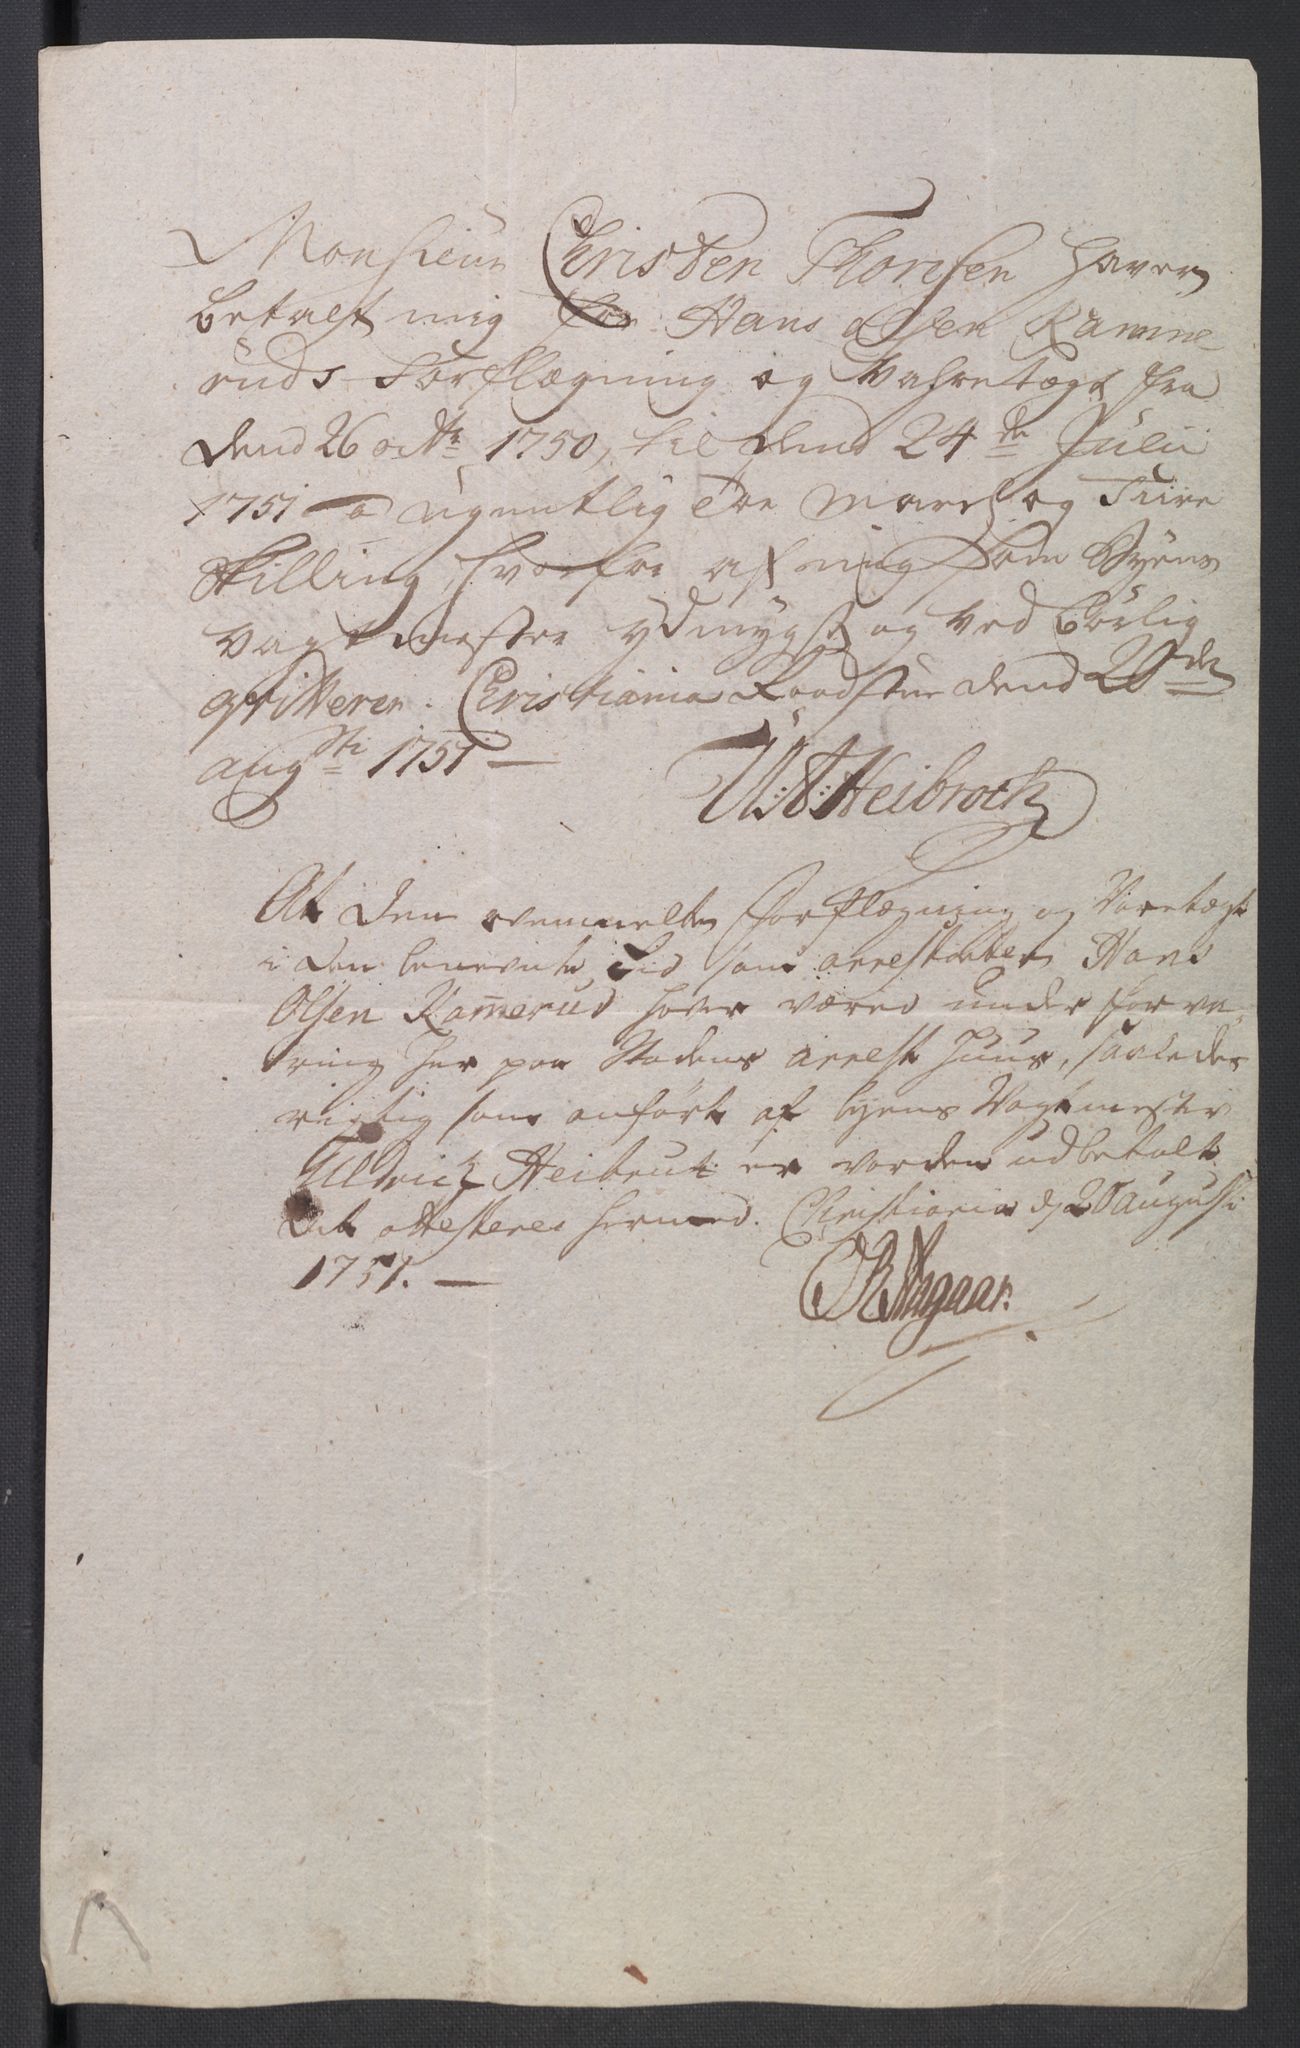 Monsieur Christen Thoresen haver
betalt mig for Hans Olsen Ramme-
ruds Forflægning og Vahretægt fra
dend 26 octbr 1750, til dend 24de Julii
1751 a ugentlig Toe Marck og Fiire
Skilling, hvorfor af mig som Byens
Vagtmester ydmygst og ved Børlig
qvitterer. Christiania Raadstue dend 20de
augsti 1751 —
U: A: Heibroch
At den ovenmelte forflægning og Varetægt
i den benevnte Tid som arrestanten Hans
Olsen Ramerud haver været under forva-
ring her paa Stadens arrest Huus, saaledes
rigtig som anført af byens Vagtmester
Ulldrich Heibrut er vorden udbetalt
det attesteres hermed. Christiania d 20 augusti
1751. —